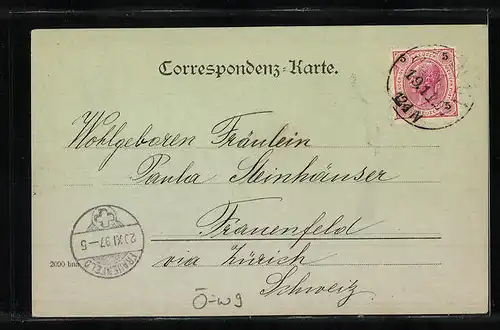 Correspondenz-Karte.
5 5
5
19.11
Wohlgeboren Fräulein
Paula Steinhäuser
Frauenfeld
via Zürich
Schweiz
20.XI.97-5
FRAUENFELD
2000
Ö-W9